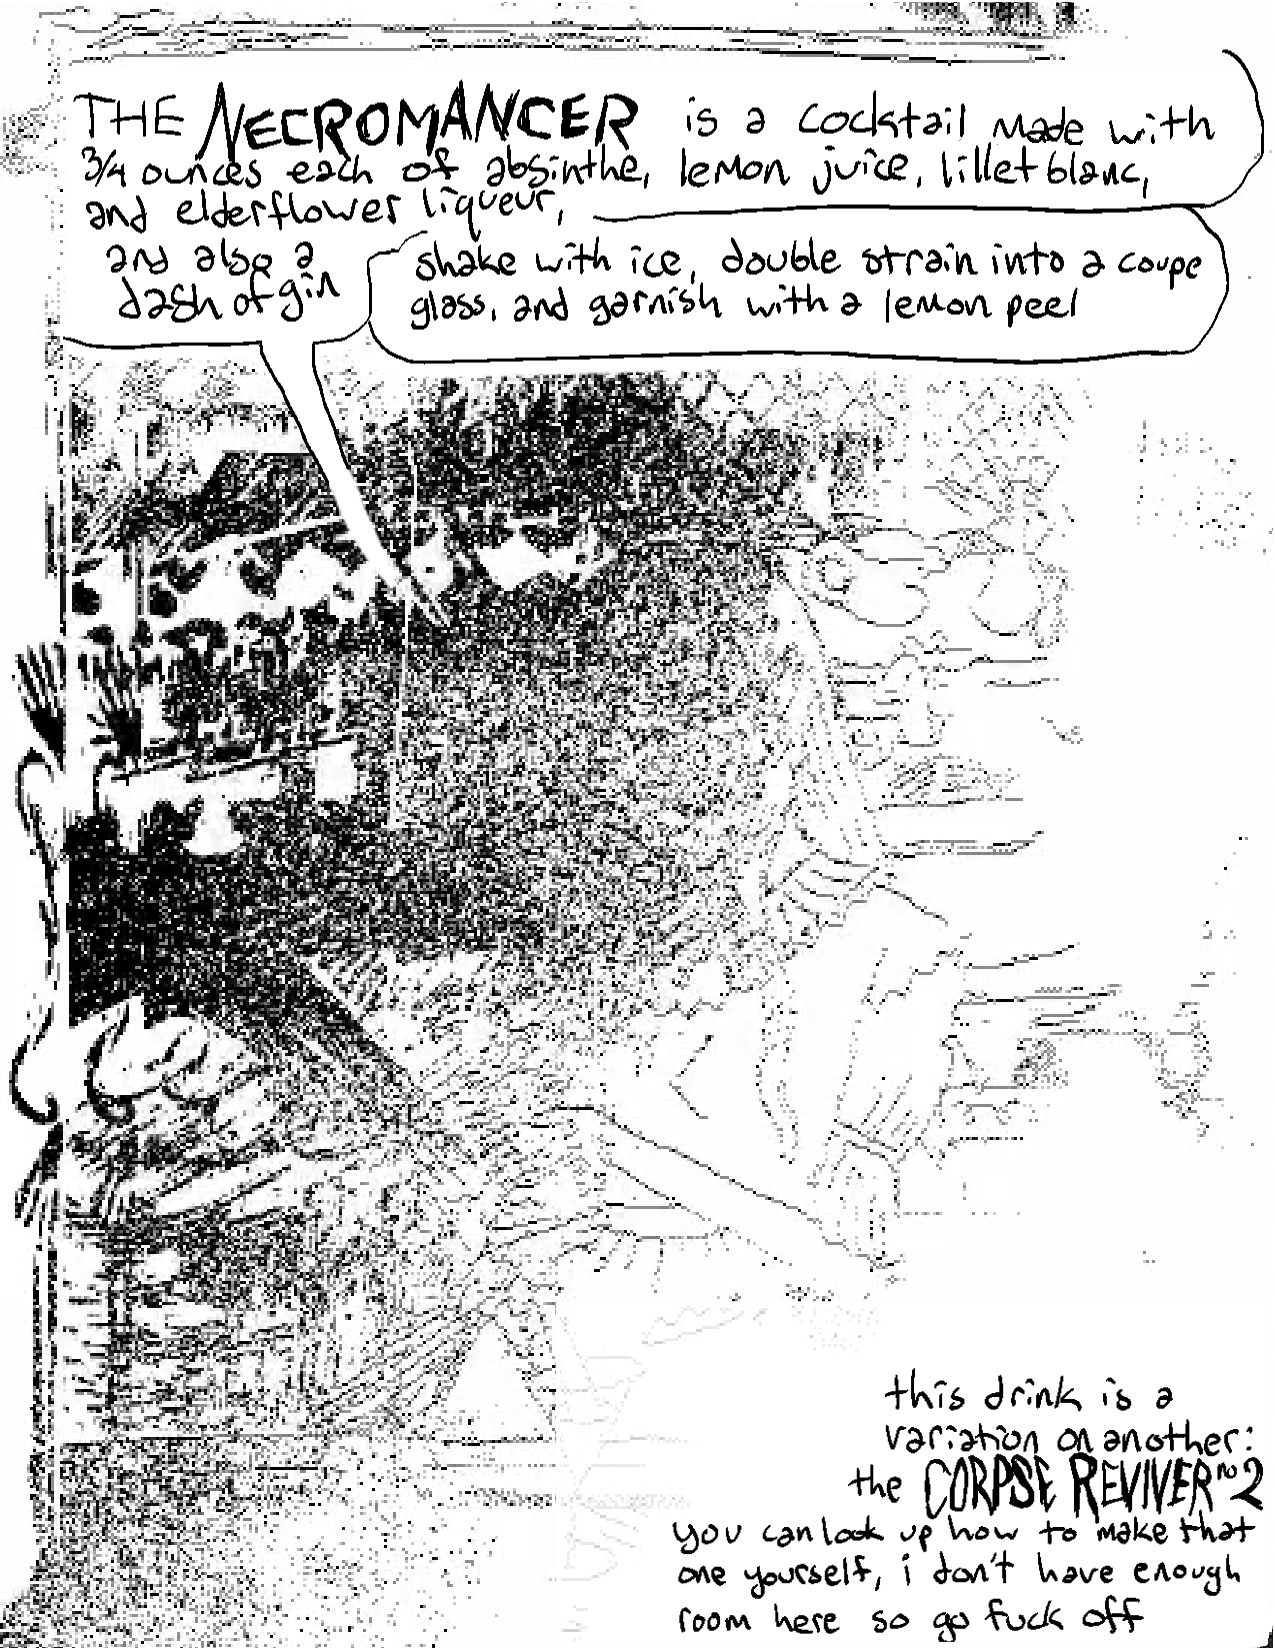 THE NECROMANCER is a cocktail made with
3/4 ounces each of absinthe, lemon juice, lillet blanc,
and elderflower liqueur,
and also a
dash of gin
shake with ice, double strain into a coupe
glass, and garnish with a lemon peel
this drink is a
variation on another:
the CORPSE REVIVER no 2
you can look up how to make that
one yourself, i don't have enough
room here so go fuck off